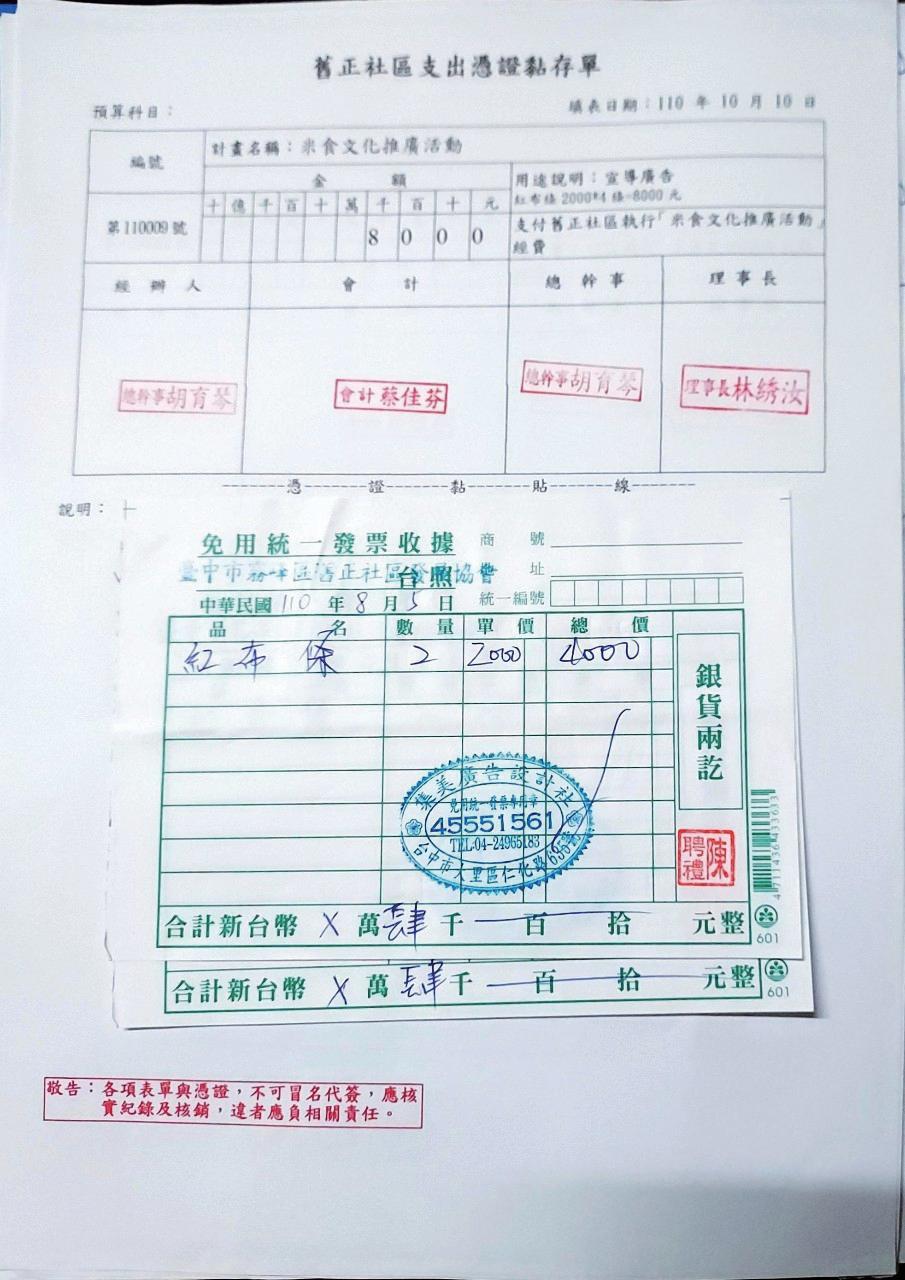 舊正社區支出憑證黏存單
預算科目：
填表日期：110 年 10 月 10 日
編號
計畫名稱：米食文化推廣活動
金 額
用途說明：宣導廣告
紅布條 2000*4 條=8000 元
十 億 千 百 十 萬 千 百 十 元
第110009號
8 0 0 0
支付舊正社區執行「米食文化推廣活動」
經費
經 辦 人 會 計 總 幹 事 理 事 長
總幹事胡育琴
會計蔡佳芬
總幹事胡育琴
理事長林綉汝
憑 證 黏 貼 線
說明：
免用統一發票收據
商 號
臺中市霧峰區舊正社區發展協會
台照
址
中華民國 110 年 8 月 5 日
統一編號
品 名 數 量 單 價 總 價
紅布條 2 2000 4000
銀貨兩訖
集美廣告設計社
免用統一發票專用章
45551561
TEL:04-24965183
台中市大里區仁化路695號
陳聘禮
4711436433633
合計新台幣 X 萬 肆 千 百 拾 元整
601
合計新台幣 X 萬 肆 千 百 拾 元整
601
敬告：各項表單與憑證，不可冒名代簽，應核
實紀錄及核銷，違者應負相關責任。